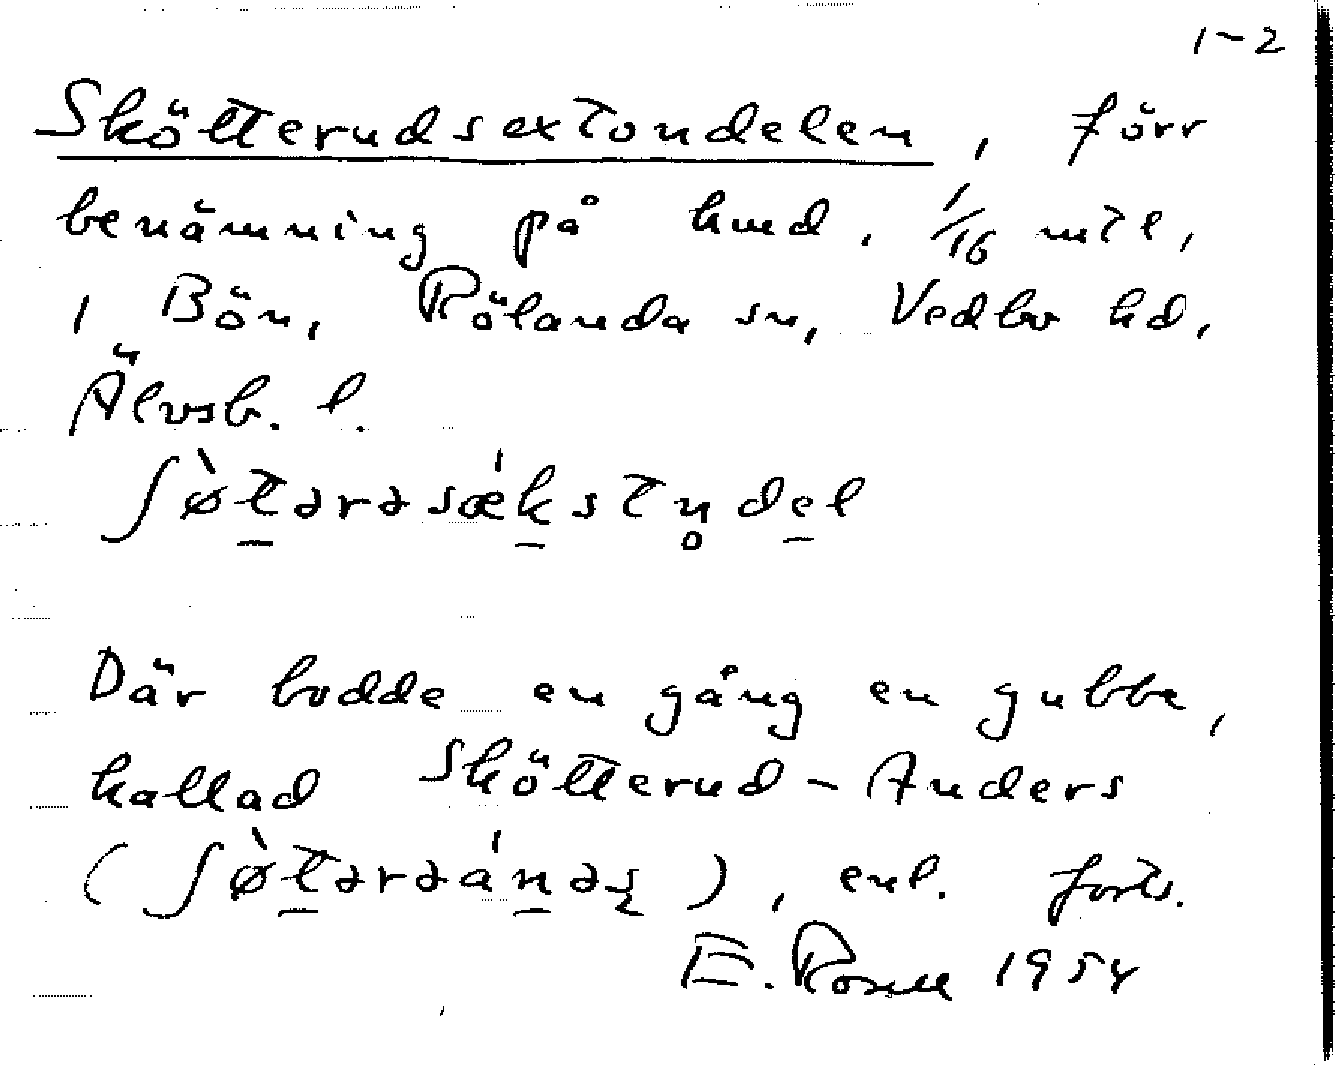 1-2
Skötterudsextondelen, förr
benämning på hmd. 1/16 mtl,
i Bön, Rölanda sn, Vedbo hd,
Älvsb. l.
ʃø̀t̠ərəsǽk̠stn̥de̠l
Där bodde en gång en gubbe,
kallad Skötterud-Anders
(ʃø̀t̠ərəán̠əʂ), enl. forts.
E. Rosell 1954